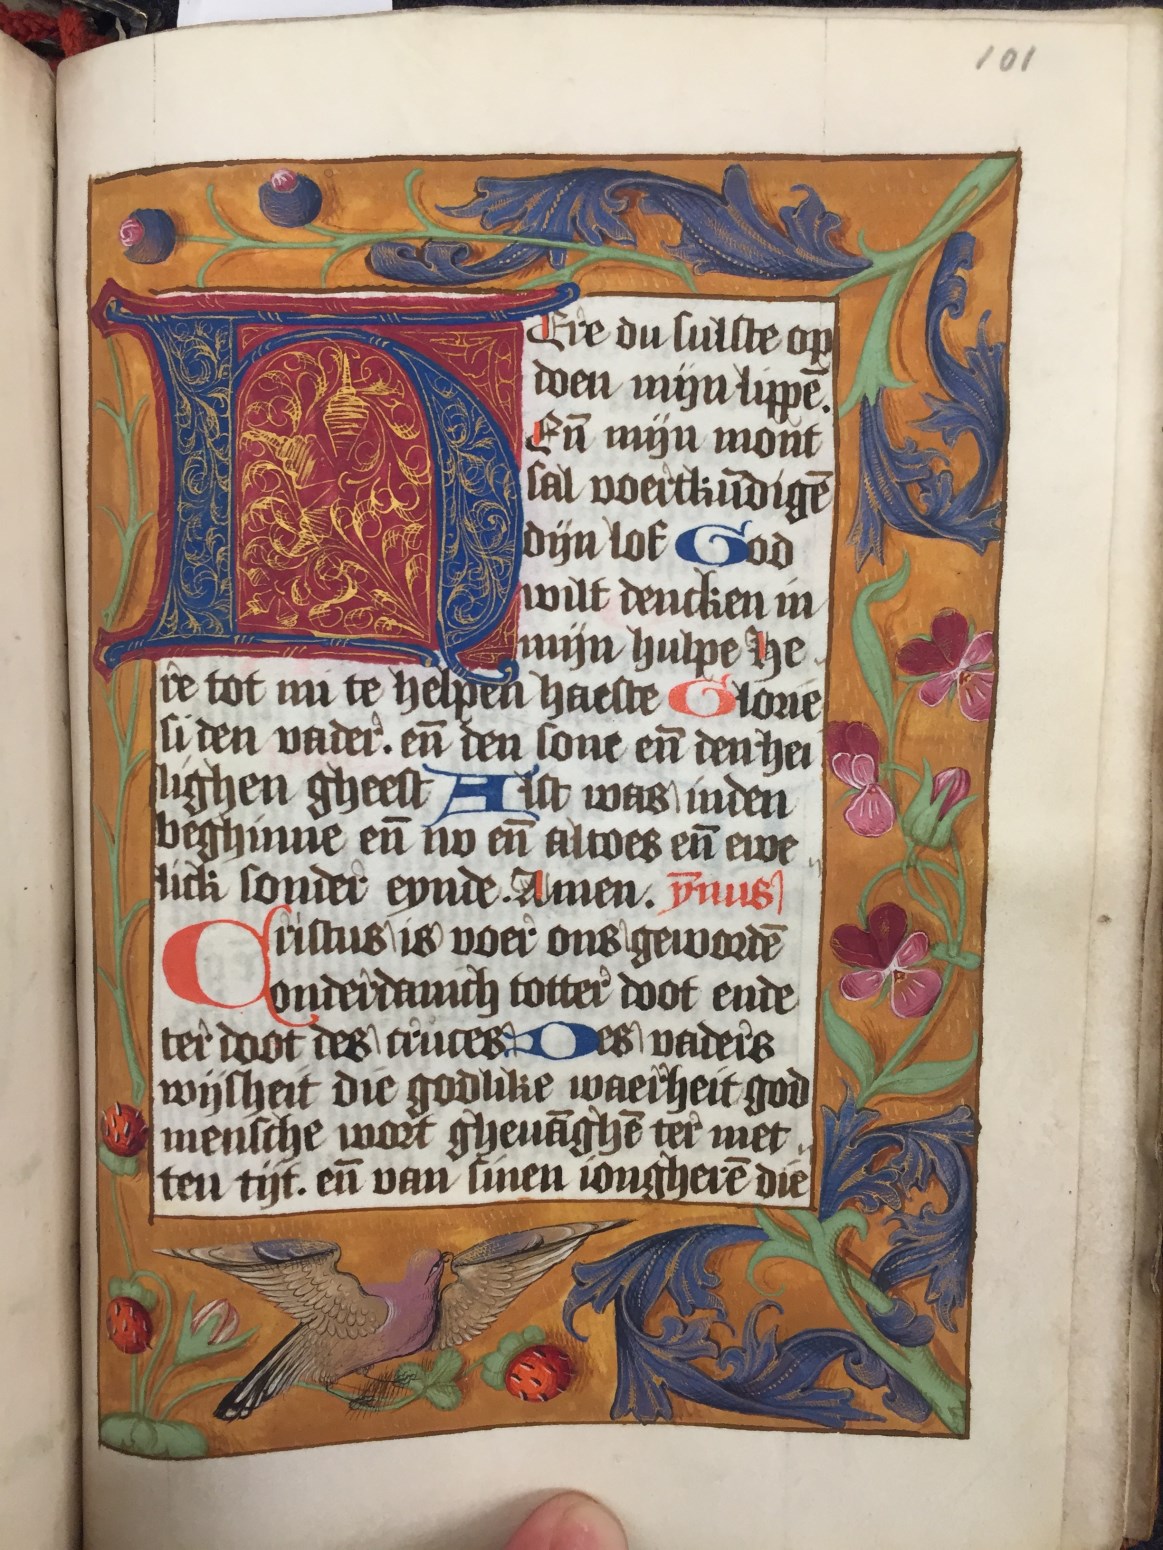 101
HEre du sulste op
doen mijn lippē.
Eñ mijn mont
sal voertkūdigē
dijn lof God
wilt dencken in
mijn hulpe He
re tot mi te helpen haeste Glorie
si den vader. eñ den sone eñ den hei
lighen gheest Alst was inden
beghinne eñ nv eñ altoes eñ ewe
lick sonder eynde. Amen. ȳnus
Cristus is voer ons gewordē
onderdanich totter doot ende
ter doot des cruces Des vaders
wijsheit die godlike waerheit god
mensche wort gheuāghē ter met
ten tijt. eñ van sinen iongherē die